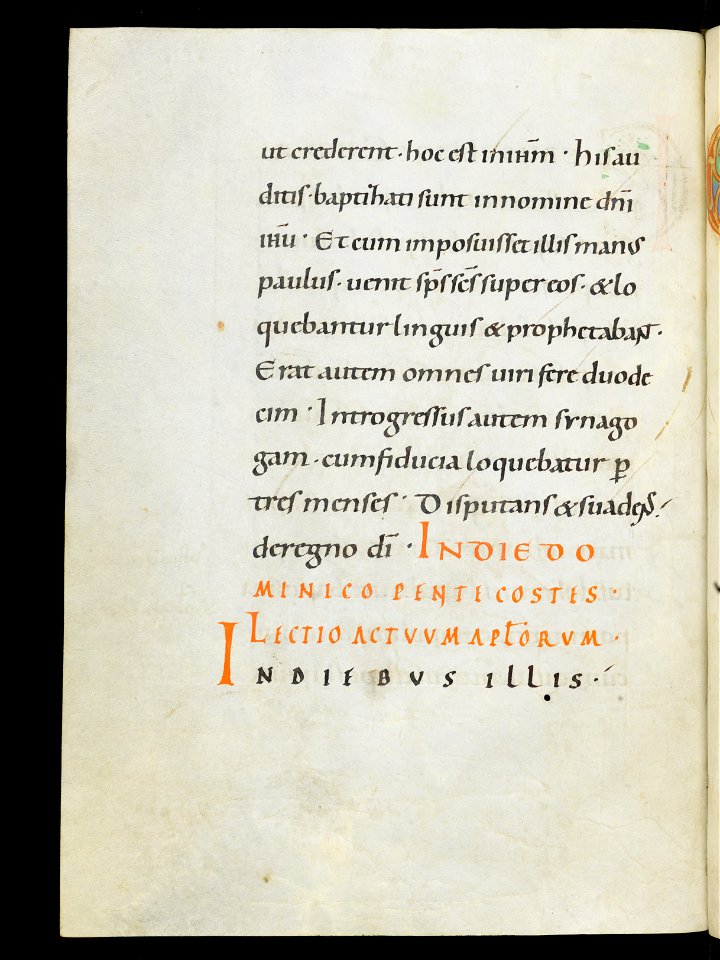 ut crederent · hoc est in ihm̄ · his au
ditis · baptizati sunt in nomine dn̄i
ihū · Et cum imposuisset illis manus
paulus · uenit sp̄s sc̄s super eos · & lo
quebantur linguis & prophetabant ·
Erat autem omnes uiri fere duode
cim · Introgressus autem synago
gam · cum fiducia loquebatur p̲
tres menses · Disputans & suadens ·
de regno dī · IN DIE DO
MINICO PENTECOSTES ·
LECTIO ACTUUM APŁORUM ·
IN DIEBUS ILLIS ·